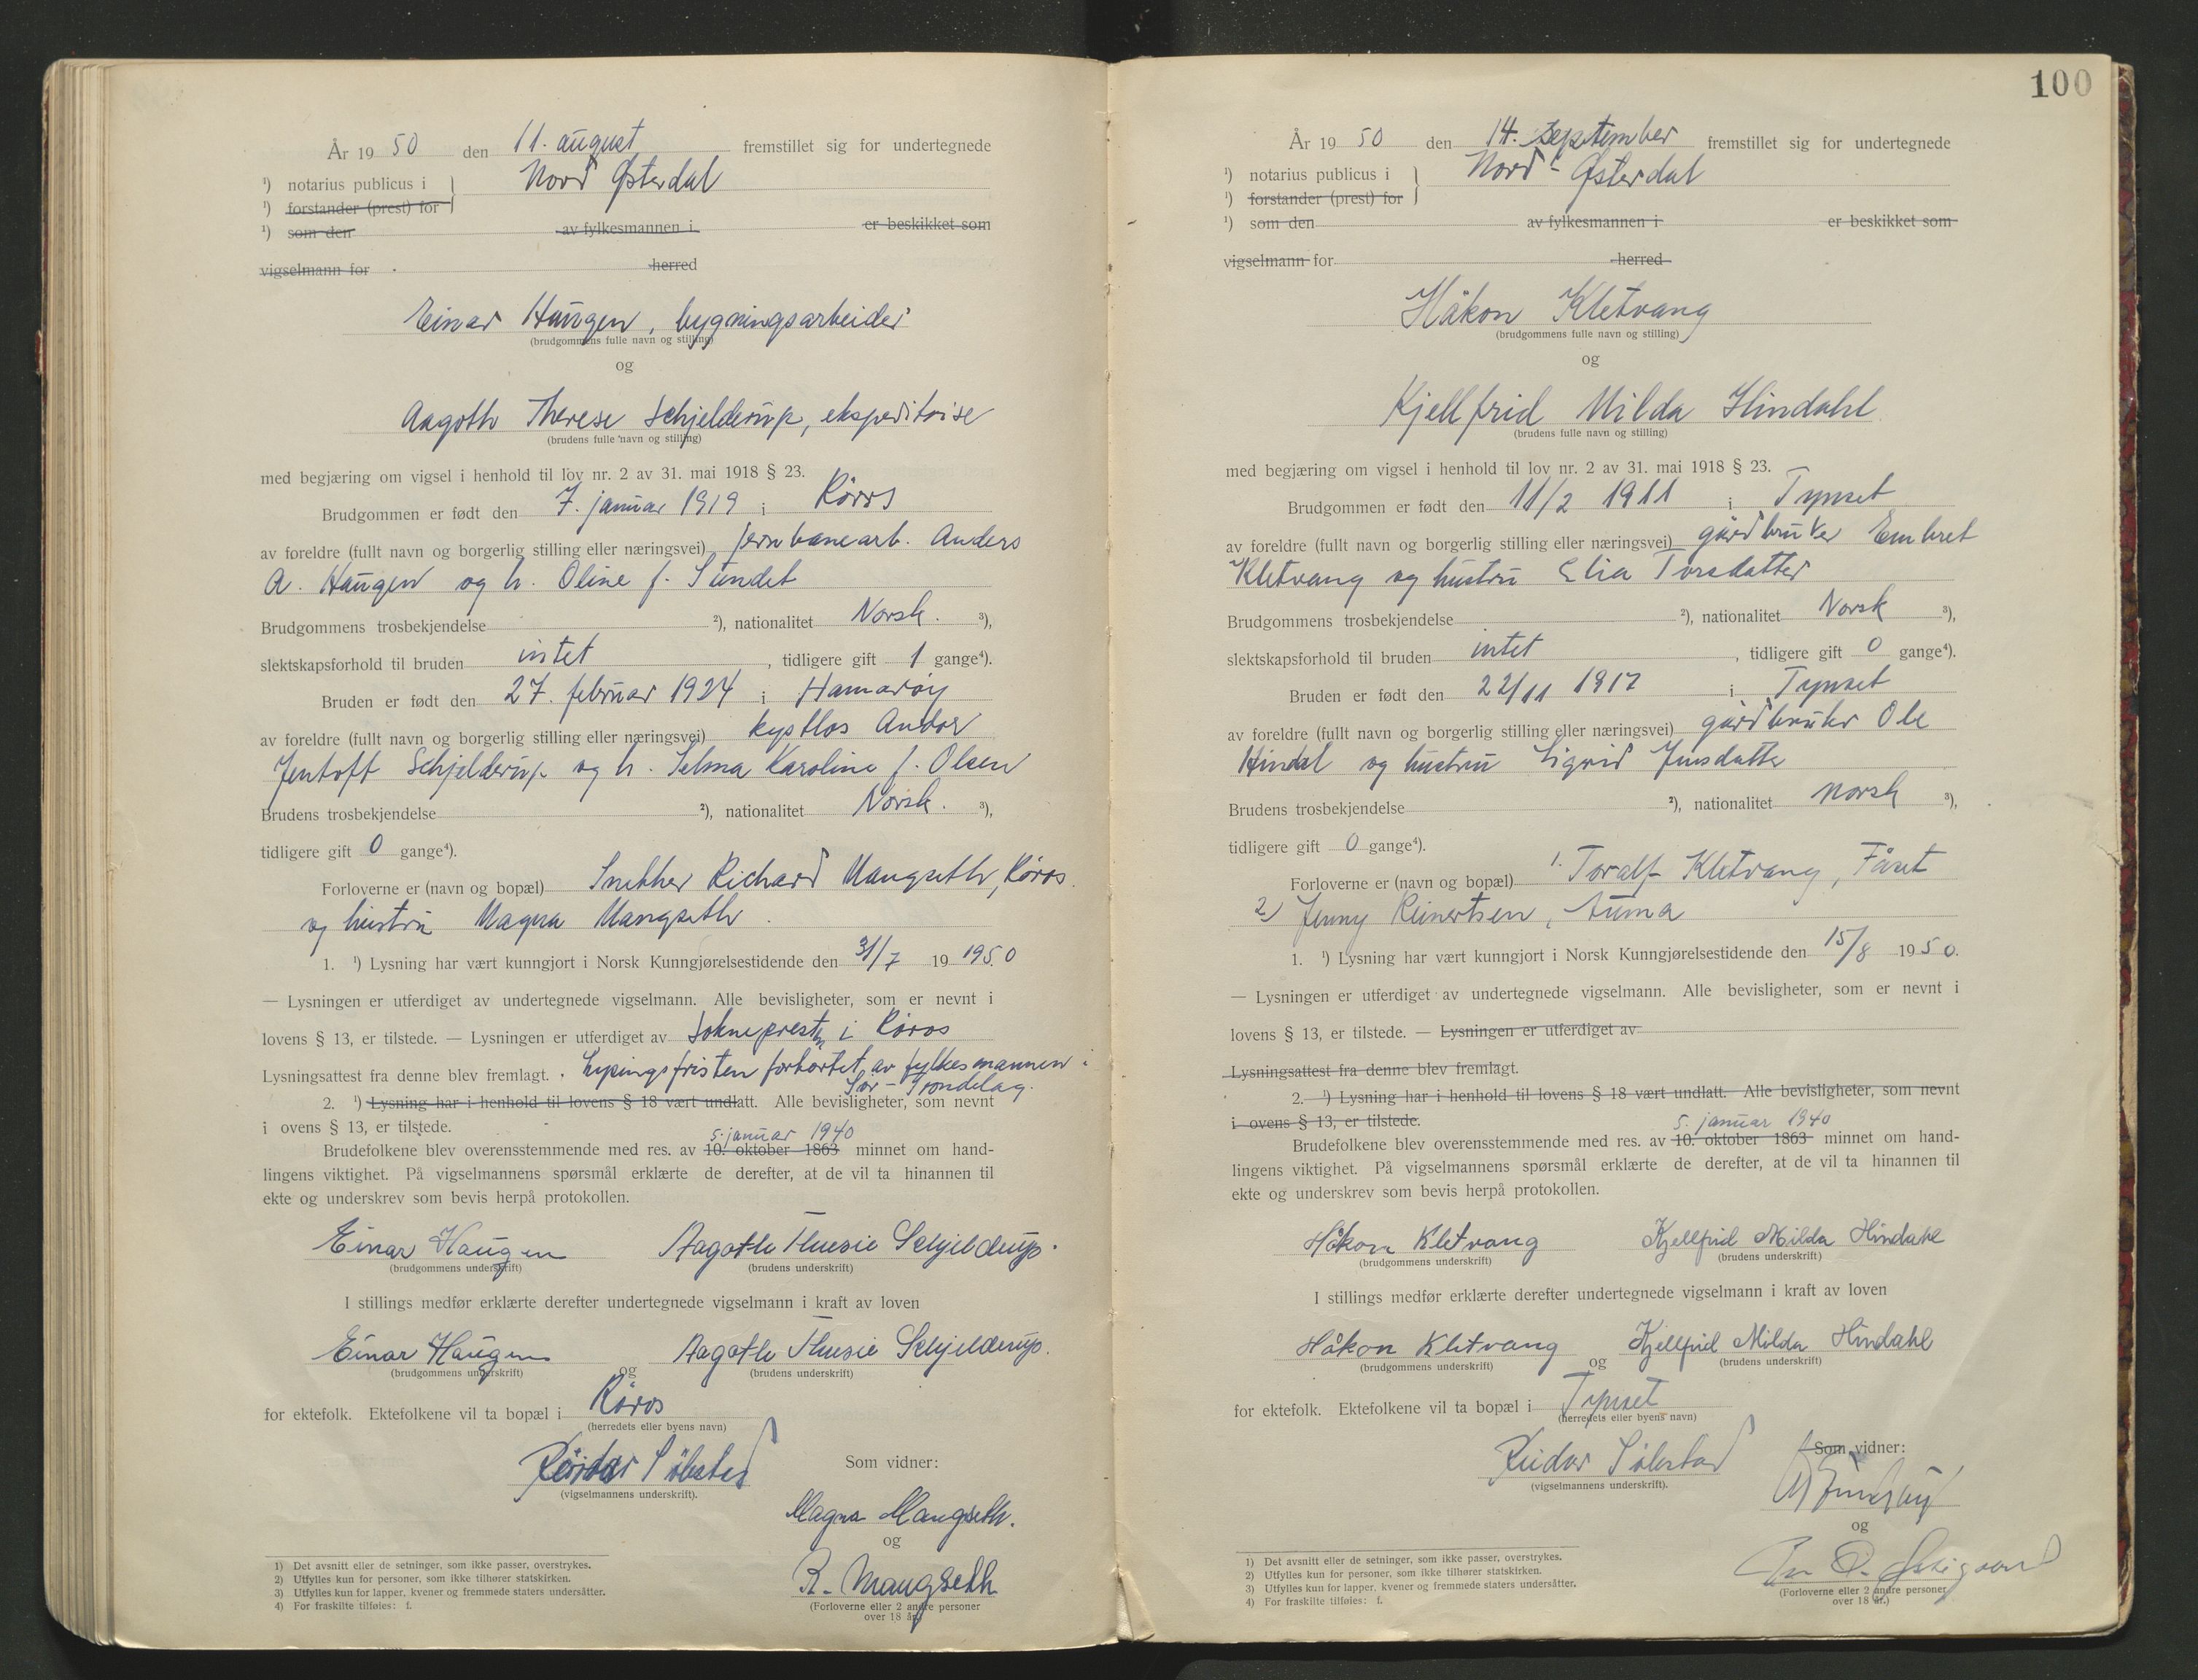 År 1950 den 11. august fremstillet sig for undertegnede
¹) notarius publicus i } Nord Østerdal
¹) forstander (prest) for
¹) som den av fylkesmannen i er beskikket som
vigselmann for herred
Einar Haugen, bygningsarbeider
(brudgommens fulle navn og stilling)
og
Aagoth Therese Schjelderup, ekspeditrise
(brudens fulle navn og stilling)
med begjæring om vigsel i henhold til lov nr. 2 av 31. mai 1918 § 23.
Brudgommen er født den 7. januar 1919 i Røros
av foreldre (fullt navn og borgerlig stilling eller næringsvei) jernbanearb. Anders
A. Haugen og h. Oline f. Sundet
Brudgommens trosbekjendelse ²), nationalitet Norsk. ³),
slektskapsforhold til bruden intet, tidligere gift 1 gange⁴).
Bruden er født den 27. februar 1924 i Hamarøy
av foreldre (fullt navn og borgerlig stilling eller næringsvei) kystlos Andor
Jentoft Schjelderup og h. Selma Karoline f. Olsen
Brudens trosbekjendelse ²), nationalitet Norsk. ³),
tidligere gift 0 gange⁴).
Forloverne er (navn og bopæl) Snekker Richard Mangseth, Røros.
og hustru Magna Mangseth.
1. ¹) Lysning har vært kunngjort i Norsk Kunngjørelsestidende den 31/7 19 1950
— Lysningen er utferdiget av undertegnede vigselmann. Alle bevisligheter, som er nevnt i
lovens § 13, er tilstede. — Lysningen er utferdiget av Soknepresten i Røros
Lysningsattest fra denne blev fremlagt. Lysingsfristen forkortet av fylkesmannen i
Sør-Trøndelag.
2. ¹) Lysning har i henhold til lovens § 18 vært undlatt. Alle bevisligheter, som nevnt
i ovens § 13, er tilstede.
5. januar 1940
Brudefolkene blev overensstemmende med res. av 10. oktober 1863 minnet om hand-
lingens viktighet. På vigselmannens spørsmål erklærte de derefter, at de vil ta hinannen til
ekte og underskrev som bevis herpå protokollen.
Einar Haugen Aagoth Therese Schjelderup.
(brudgommens underskrift) (brudens underskrift)
I stillings medfør erklærte derefter undertegnede vigselmann i kraft av loven
Einar Haugen og Aagoth Therese Schjelderup.
(brudgommens underskrift) (brudens underskrift)
for ektefolk. Ektefolkene vil ta bopæl i Røros
(herredets eller byens navn)
Reidar Sølostad
(vigselmannens underskrift).
Som vidner:
Magna Mangseth.
og
R. Mangseth
(Forloverne eller 2 andre personer
over 18 år.)
1) Det avsnitt eller de setninger, som ikke passer, overstrykes.
2) Utfylles kun for personer, som ikke tilhører statskirken.
3) Utfylles kun for lapper, kvener og fremmede staters undersåtter.
4) For fraskilte tilføies: f.
100
År 1950 den 14. september fremstillet sig for undertegnede
¹) notarius publicus i } Nord-Østerdal
¹) forstander (prest) for
¹) som den av fylkesmannen i er beskikket som
vigselmann for herred
Håkon Kletvang
(brudgommens fulle navn og stilling)
og
Kjellfrid Milda Hindahl
(brudens fulle navn og stilling)
med begjæring om vigsel i henhold til lov nr. 2 av 31. mai 1918 § 23.
Brudgommen er født den 11/2 1911 i Tynset
av foreldre (fullt navn og borgerlig stilling eller næringsvei) gårdbruker Embret
Kletvang og hustru Elia Torsdatter
Brudgommens trosbekjendelse ²), nationalitet Norsk ³),
slektskapsforhold til bruden intet, tidligere gift 0 gange⁴).
Bruden er født den 22/11 1917 i Tynset
av foreldre (fullt navn og borgerlig stilling eller næringsvei) gårdbruker Ole
Hindal og hustru Sigrid Jensdatter
Brudens trosbekjendelse ²), nationalitet norsk ³),
tidligere gift 0 gange⁴).
Forloverne er (navn og bopæl) 1. Toralf Kletvang, Fåset
2) Jenny Reinertsen, Auma
1. ¹) Lysning har vært kunngjort i Norsk Kunngjørelsestidende den 15/8 1950.
— Lysningen er utferdiget av undertegnede vigselmann. Alle bevisligheter, som er nevnt i
lovens § 13, er tilstede. — Lysningen er utferdiget av
Lysningsattest fra denne blev fremlagt.
2. ¹) Lysning har i henhold til lovens § 18 vært undlatt. Alle bevisligheter, som nevnt
i ovens § 13, er tilstede.
5. januar 1940
Brudefolkene blev overensstemmende med res. av 10. oktober 1863 minnet om hand-
lingens viktighet. På vigselmannens spørsmål erklærte de derefter, at de vil ta hinannen til
ekte og underskrev som bevis herpå protokollen.
Håkon Kletvang Kjellfrid Milda Hindahl
(brudgommens underskrift) (brudens underskrift)
I stillings medfør erklærte derefter undertegnede vigselmann i kraft av loven
Håkon Kletvang og Kjellfrid Milda Hindahl
(brudgommens underskrift) (brudens underskrift)
for ektefolk. Ektefolkene vil ta bopæl i Tynset
(herredets eller byens navn)
Reidar Sølostad
(vigselmannens underskrift).
Som vidner:
og
(Forloverne eller 2 andre personer
over 18 år.)
1) Det avsnitt eller de setninger, som ikke passer, overstrykes.
2) Utfylles kun for personer, som ikke tilhører statskirken.
3) Utfylles kun for lapper, kvener og fremmede staters undersåtter.
4) For fraskilte tilføies: f.